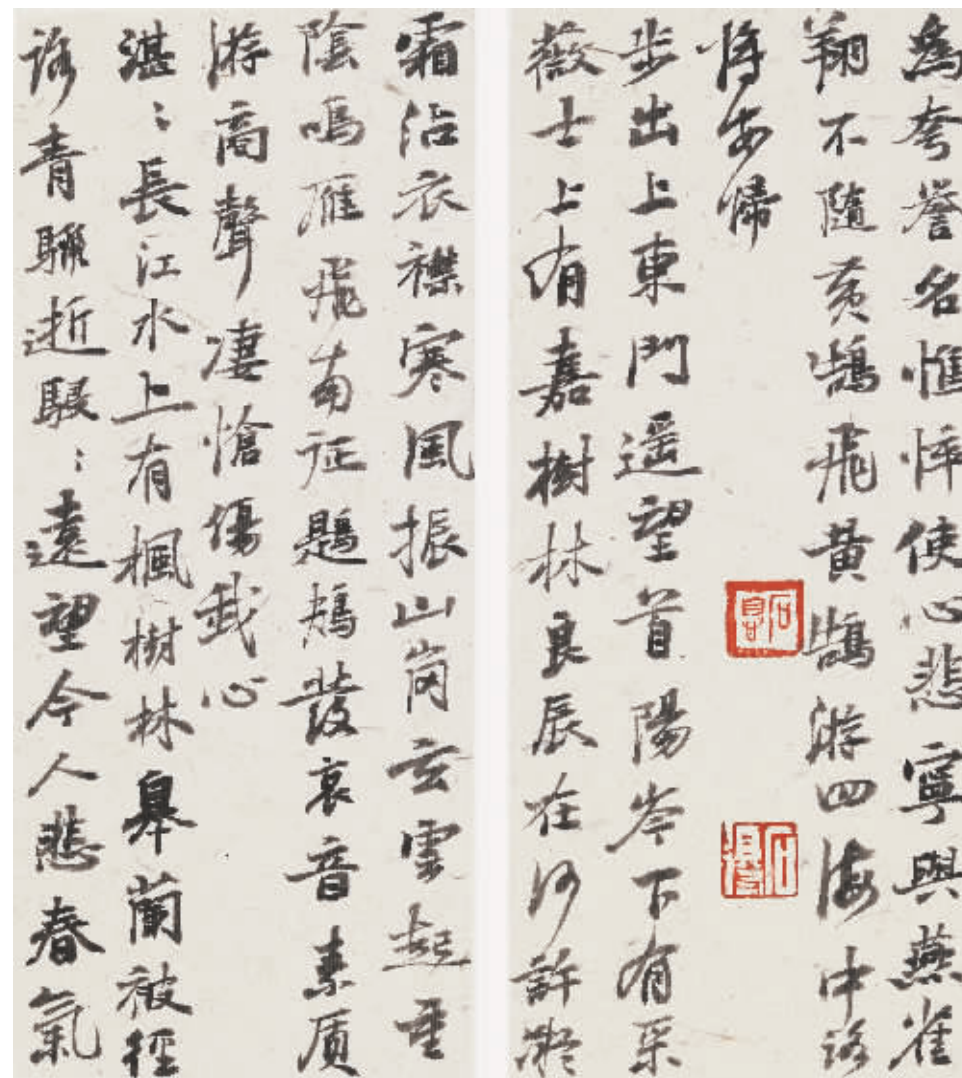 為夸誉名憔悴使心悲寧與燕雀
翔不隨黄鵠飛黄鵠游四海中路
将安歸
步出上東門遥望首陽岑下有采
薇士上有嘉樹林良辰在何許凝
霜沾衣襟寒風振山崗玄雲起重
陰鳴雁飛南征鶗鴂發哀音素质
游商聲凄愴傷我心
湛々長江水上有楓樹林皋蘭被徑
路青驪逝駸々遠望令人悲春氣